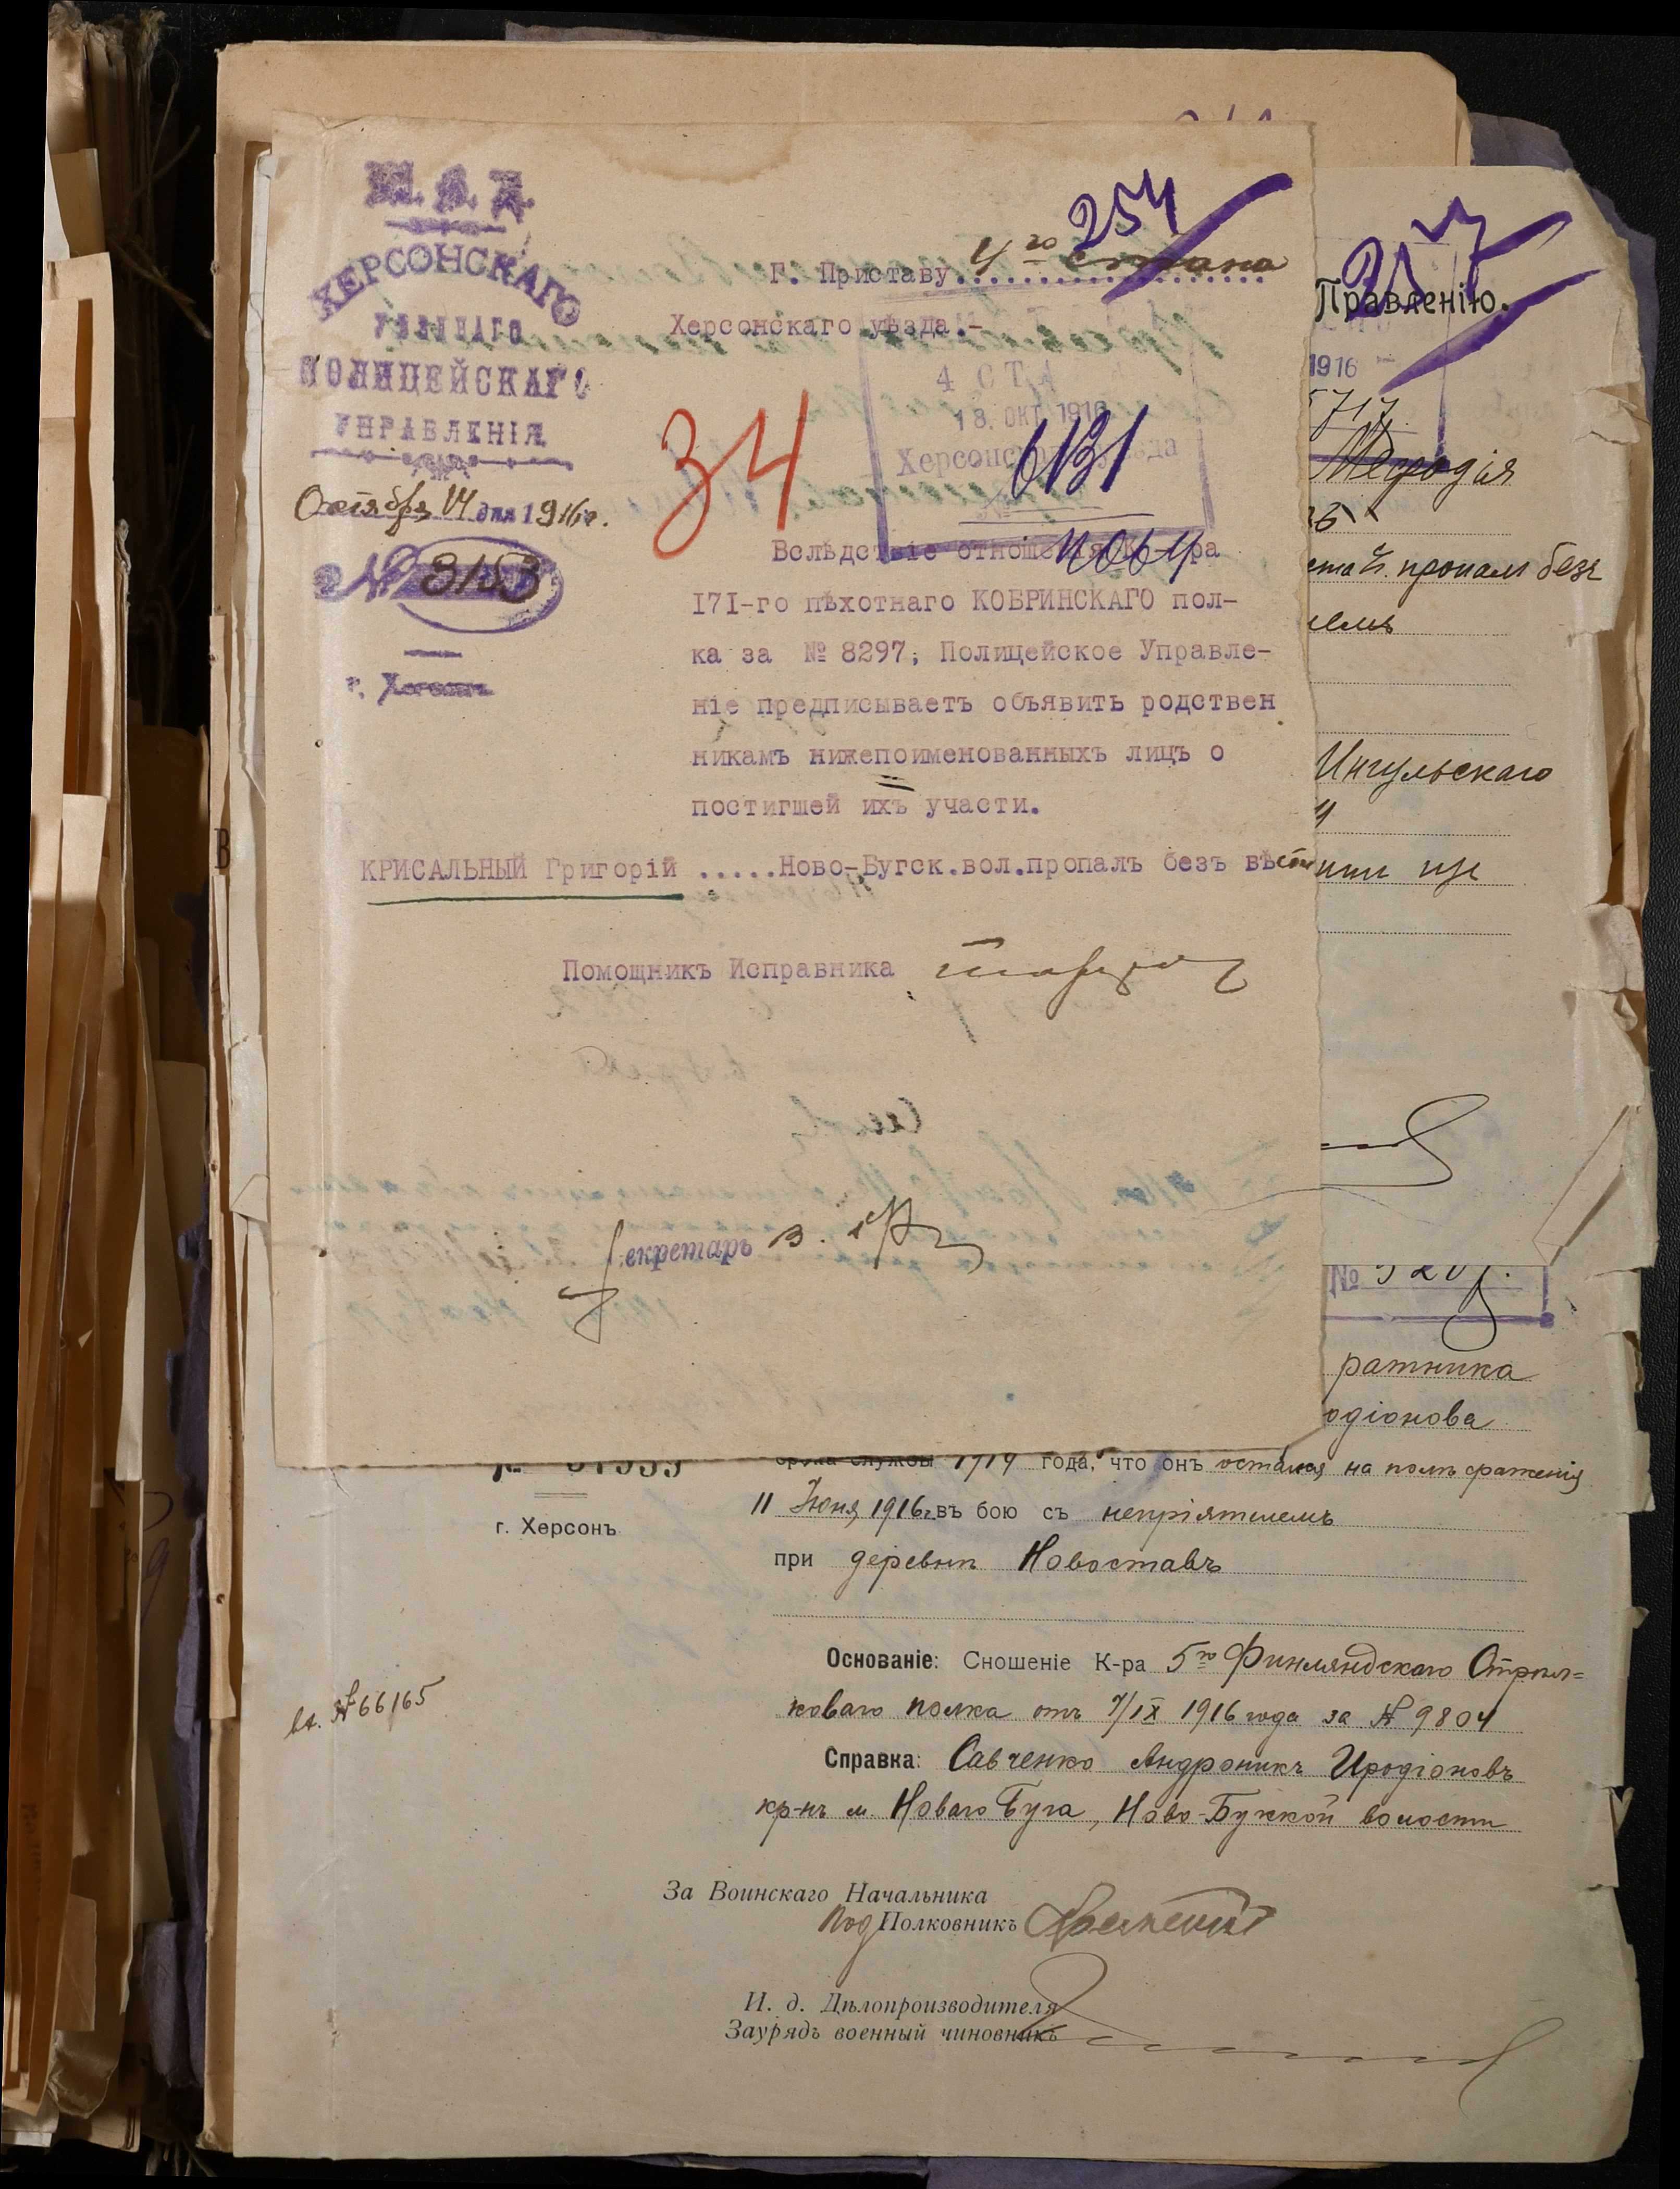 М. В. Д.
ХЕРСОНСКАГО
УѢЗДНАГО
ПОЛИЦЕЙСКАГО
УПРАВЛЕНІЯ
Октября 14 дня 1916 г.
№ 3153
г. Херсонъ
254
Г. Приставу 4го стана
Херсонскаго уѣзда.-
4 СТА
18. ОКТ. 1916
Херсонска уѣзда
34
6131
Вслѣдствіе отношенія К-ра
171-го пѣхотнаго КОБРИНСКАГО пол-
ка за № 8297, Полицейское Управле-
ніе предписываетъ объявить родствен
никамъ нижепоименованныхъ лицъ о
постигшей ихъ участи.
КРИСАЛЬНЫЙ Григорій .....Ново-Бугск.вол.пропалъ безъ вѣсти
Помощникъ Исправника
Секретарь
Правленію.
1916
717
Мефодія
пропалъ безъ
Ингульскаго
№
ратника
одіонова
срока службы 1914 года, что онъ остался на полѣ сраженія
11 Іюня 1916 г. въ бою съ непріятелемъ
при деревнѣ Новоставъ
г. Херсонъ
Основаніе: Сношеніе К-ра 5го Финляндскаго Стрѣл=
коваго полка отъ 7/IX 1916 года за № 9804
вх. № 66165
Справка: Савченко Андроникъ Иродіоновъ
кр-нъ м. Новаго Буга, Ново-Бугской волости
За Воинскаго Начальника
Под Полковникъ
И. д. Дѣлопроизводителя
Заурядъ военный чиновникъ